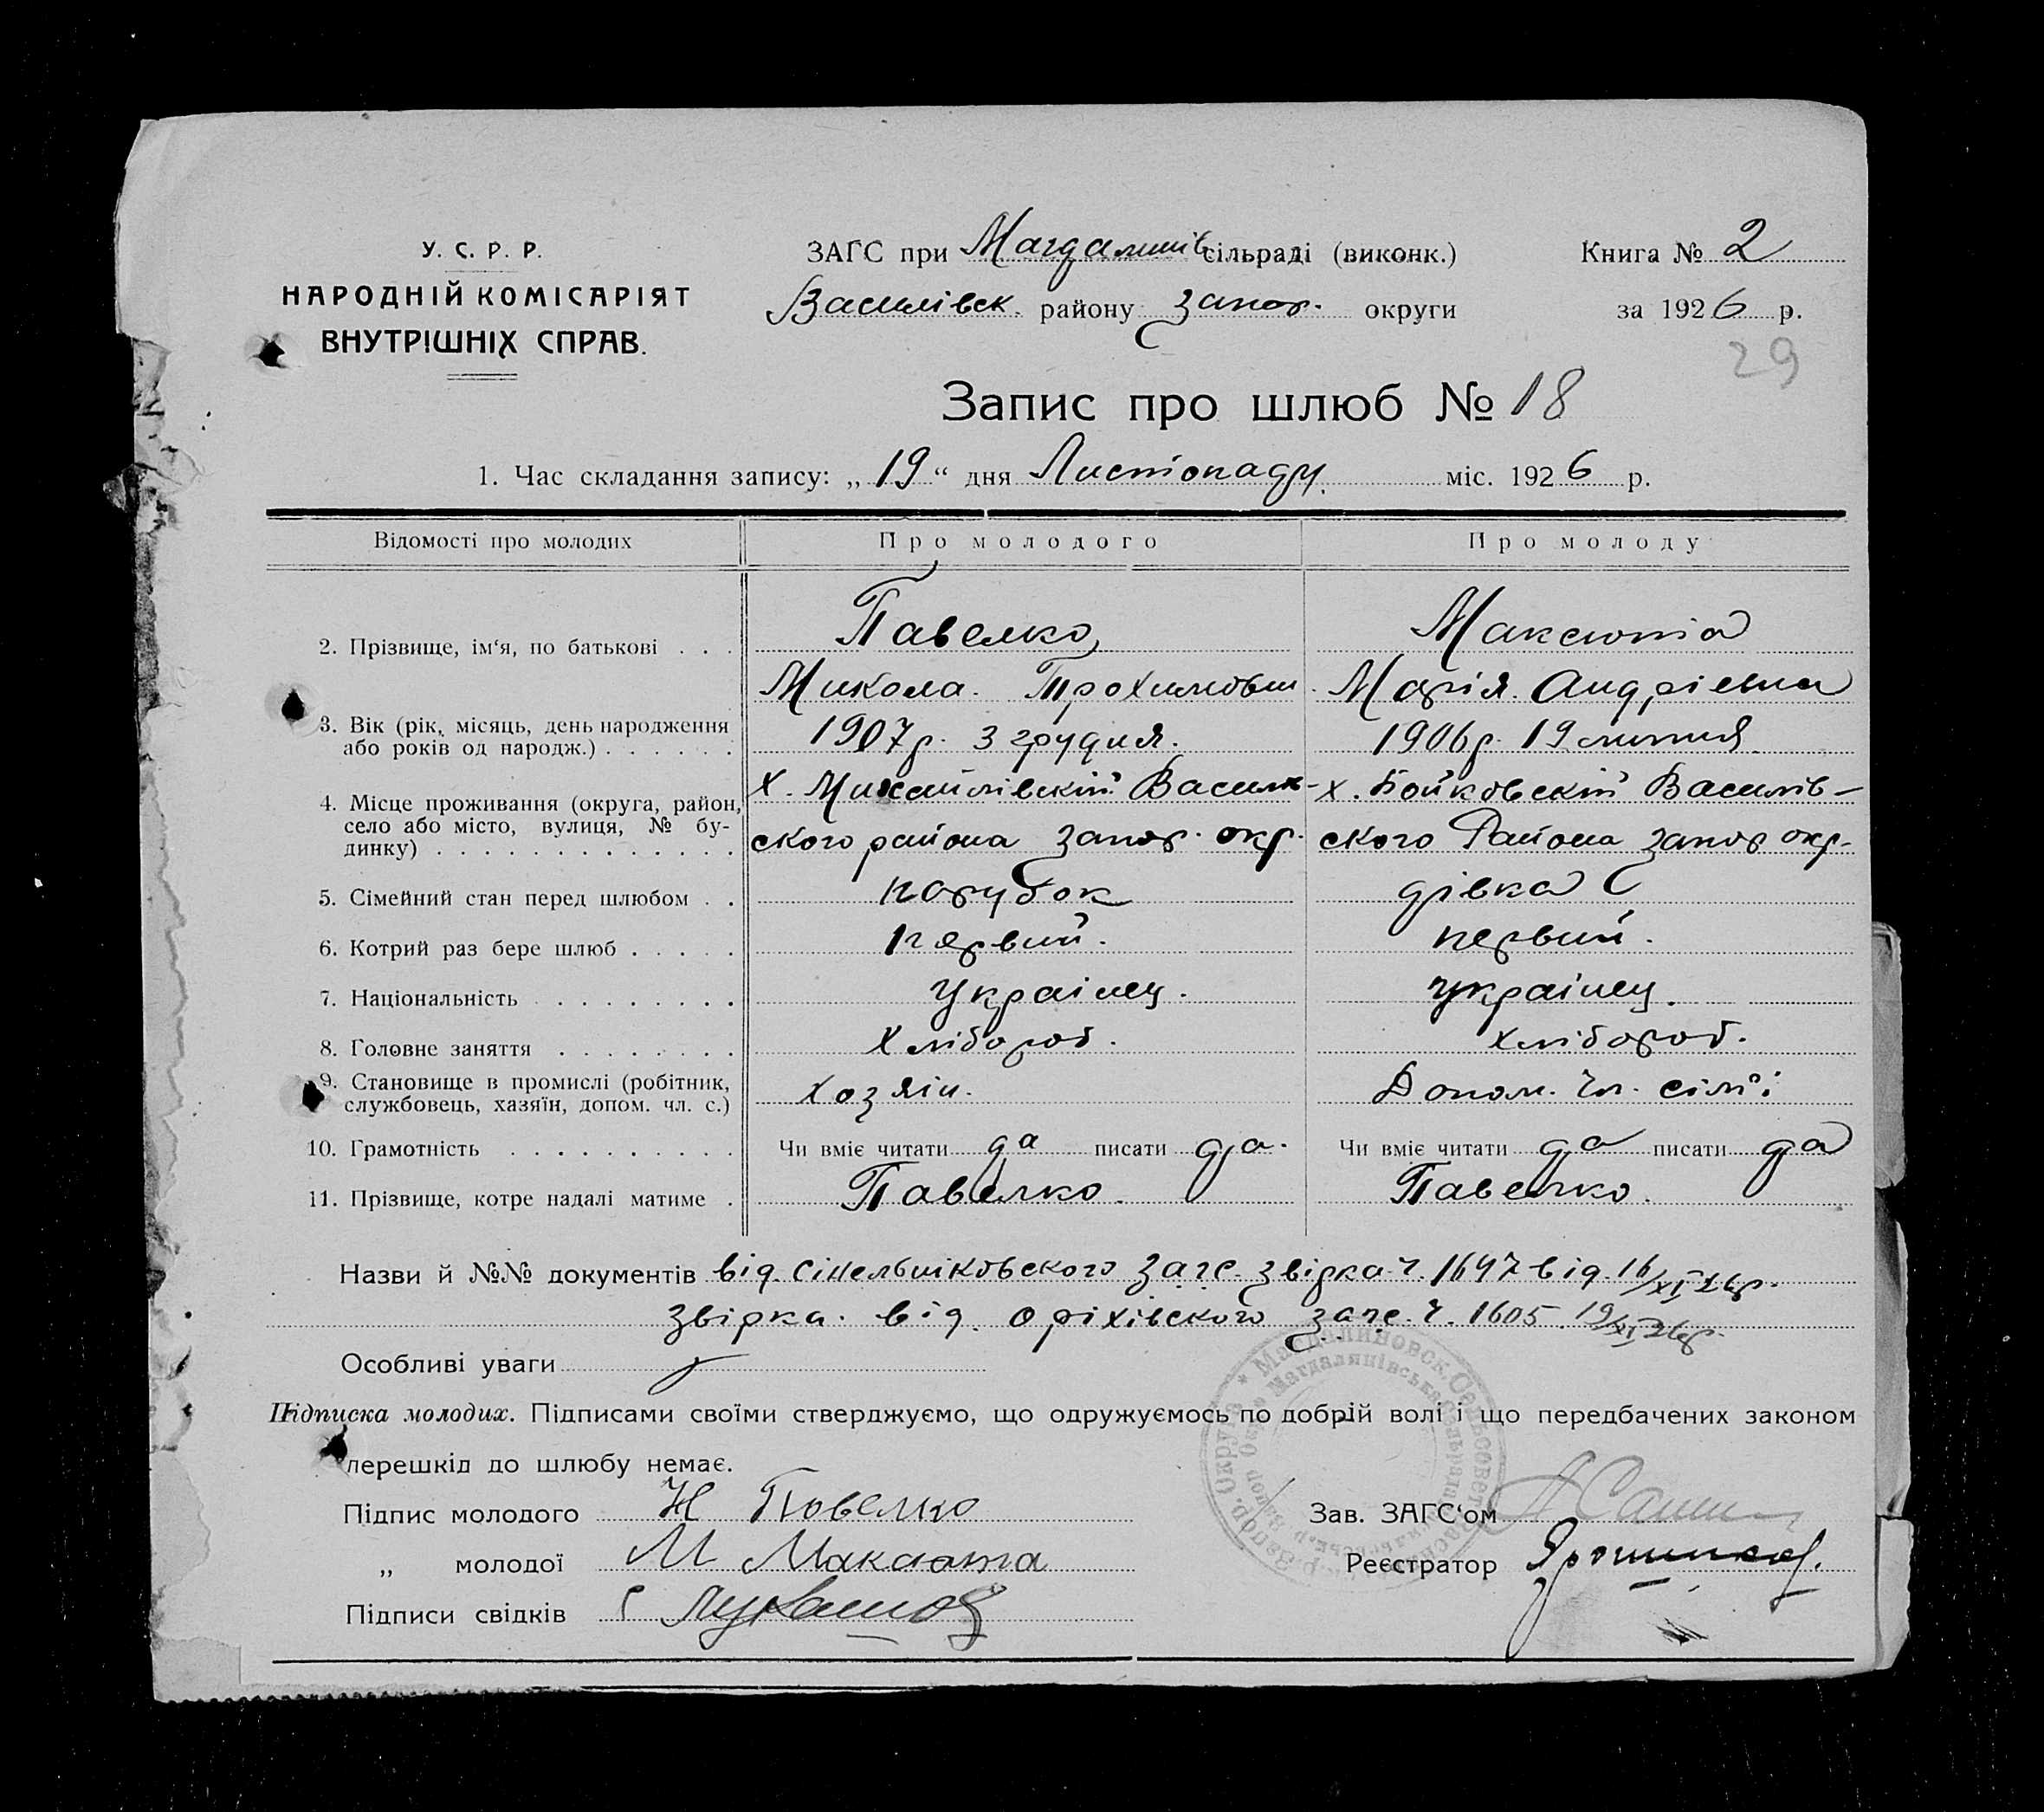 У. С. Р. Р.
НАРОДНІЙ КОМІСАРІЯТ
ВНУТРІШНІХ СПРАВ.
ЗАГС при Магдалинів сільраді (виконк.)
Василівск. району Запор. округи
Книга № 2
за 1926 р.
29
Запис про шлюб № 18
1. Час складання запису: „19“ дня Листопаду. міс. 1926 р.
Відомості про молодих Про молодого Про молоду
2. Прізвище, ім‘я, по батькові . . . Павелко Максюта
Микола Трохимович Марія Андріевна
3. Вік (рік, місяць, день народження
або років од народж.) . . . . . . 1907р. 3 грудня. 1906р. 19 липня
4. Місце проживання (округа, район,
село або місто, вулиця, № бу-
динку) . . . . . . . . . . . . .
х. Михайлівский Василів- х. Бойковский Василів-
ского района Запор. окр. ского Района Запор окр.
5. Сімейний стан перед шлюбом . . парубок дівка
6. Котрий раз бере шлюб . . . . . первий. первий.
7. Національність . . . . . . . . украінец. украінец.
8. Головне заняття . . . . . . . . Хлібороб. хлібороб.
9. Становище в промислі (робітник,
службовець, хазяїн, допом. чл. с.) хозяін. Допом. чл. сім'і
10. Грамотність . . . . . . . . . . Чи вміє читати да писати да. Чи вміє читати да писати да
11. Прізвище, котре надалі матиме . Павелко. Павелко.
Назви й №№ документів від. Сінельніковского загс. звірка ч. 1697 від. 16/XI 26р.
звірка. від. Оріхівского загс. ч. 1605 19/XI 26р.
Особливі уваги
Підписка молодих. Підписами своїми стверджуємо, що одружуємось по добрій волі і що передбачених законом
перешкід до шлюбу немає.
Підпис молодого Н Повелко
Зав. ЗАГС‘ом
„ молодої М Максюта
Реєстратор
Підписи свідків